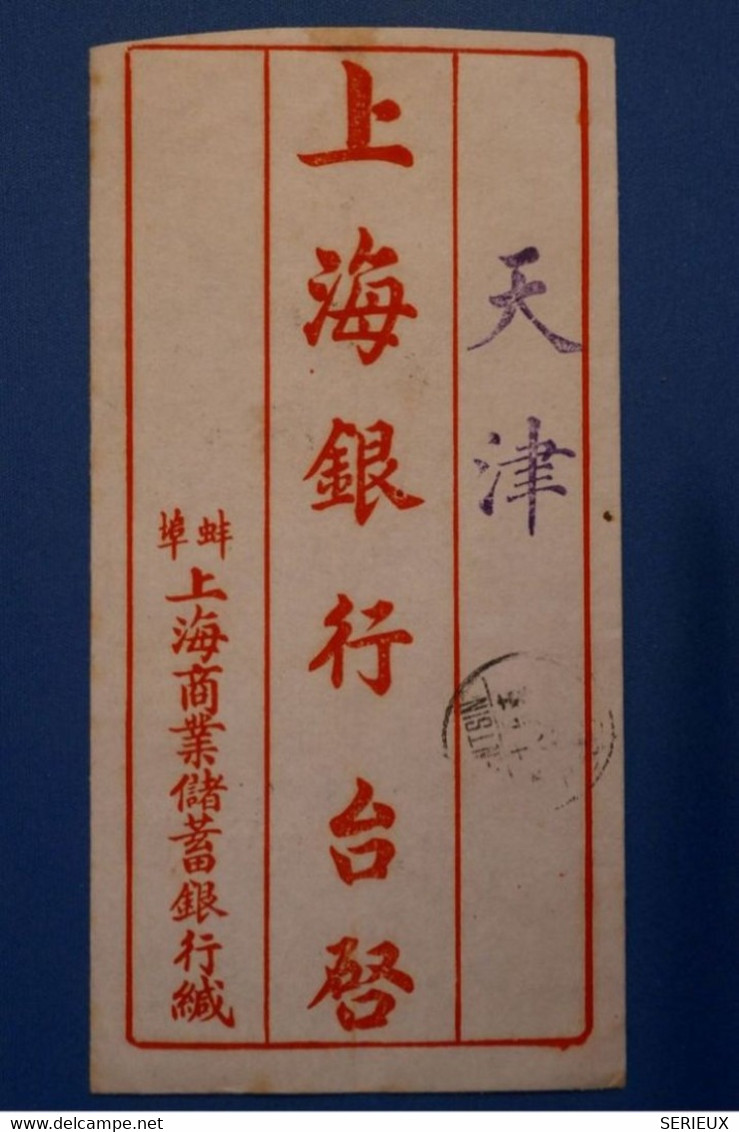 天津
上海銀行台啓
蚌埠
上海商業儲蓄銀行緘
NTSIN
delcampe.net
SERIEUX